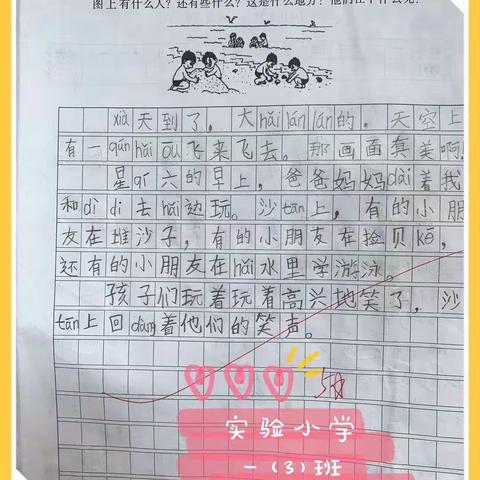 图上有什么人？还有些什么？这是什么地方？他们在干什么呢？
xià天到了，大hǎi lán lán的，天空上
有一qún hǎi ōu飞来飞去。那画面真美啊！
星qī六的早上，爸爸妈妈dài着我
和dì di去hǎi边玩。沙tān上，有的小朋
友在堆沙子，有的小朋友在捡贝ké，
还有的小朋友在hǎi水里学游泳。
孩子们玩着玩着高兴地笑了，沙
tān上回dàng着他们的笑声。
实验小学
一（3）班